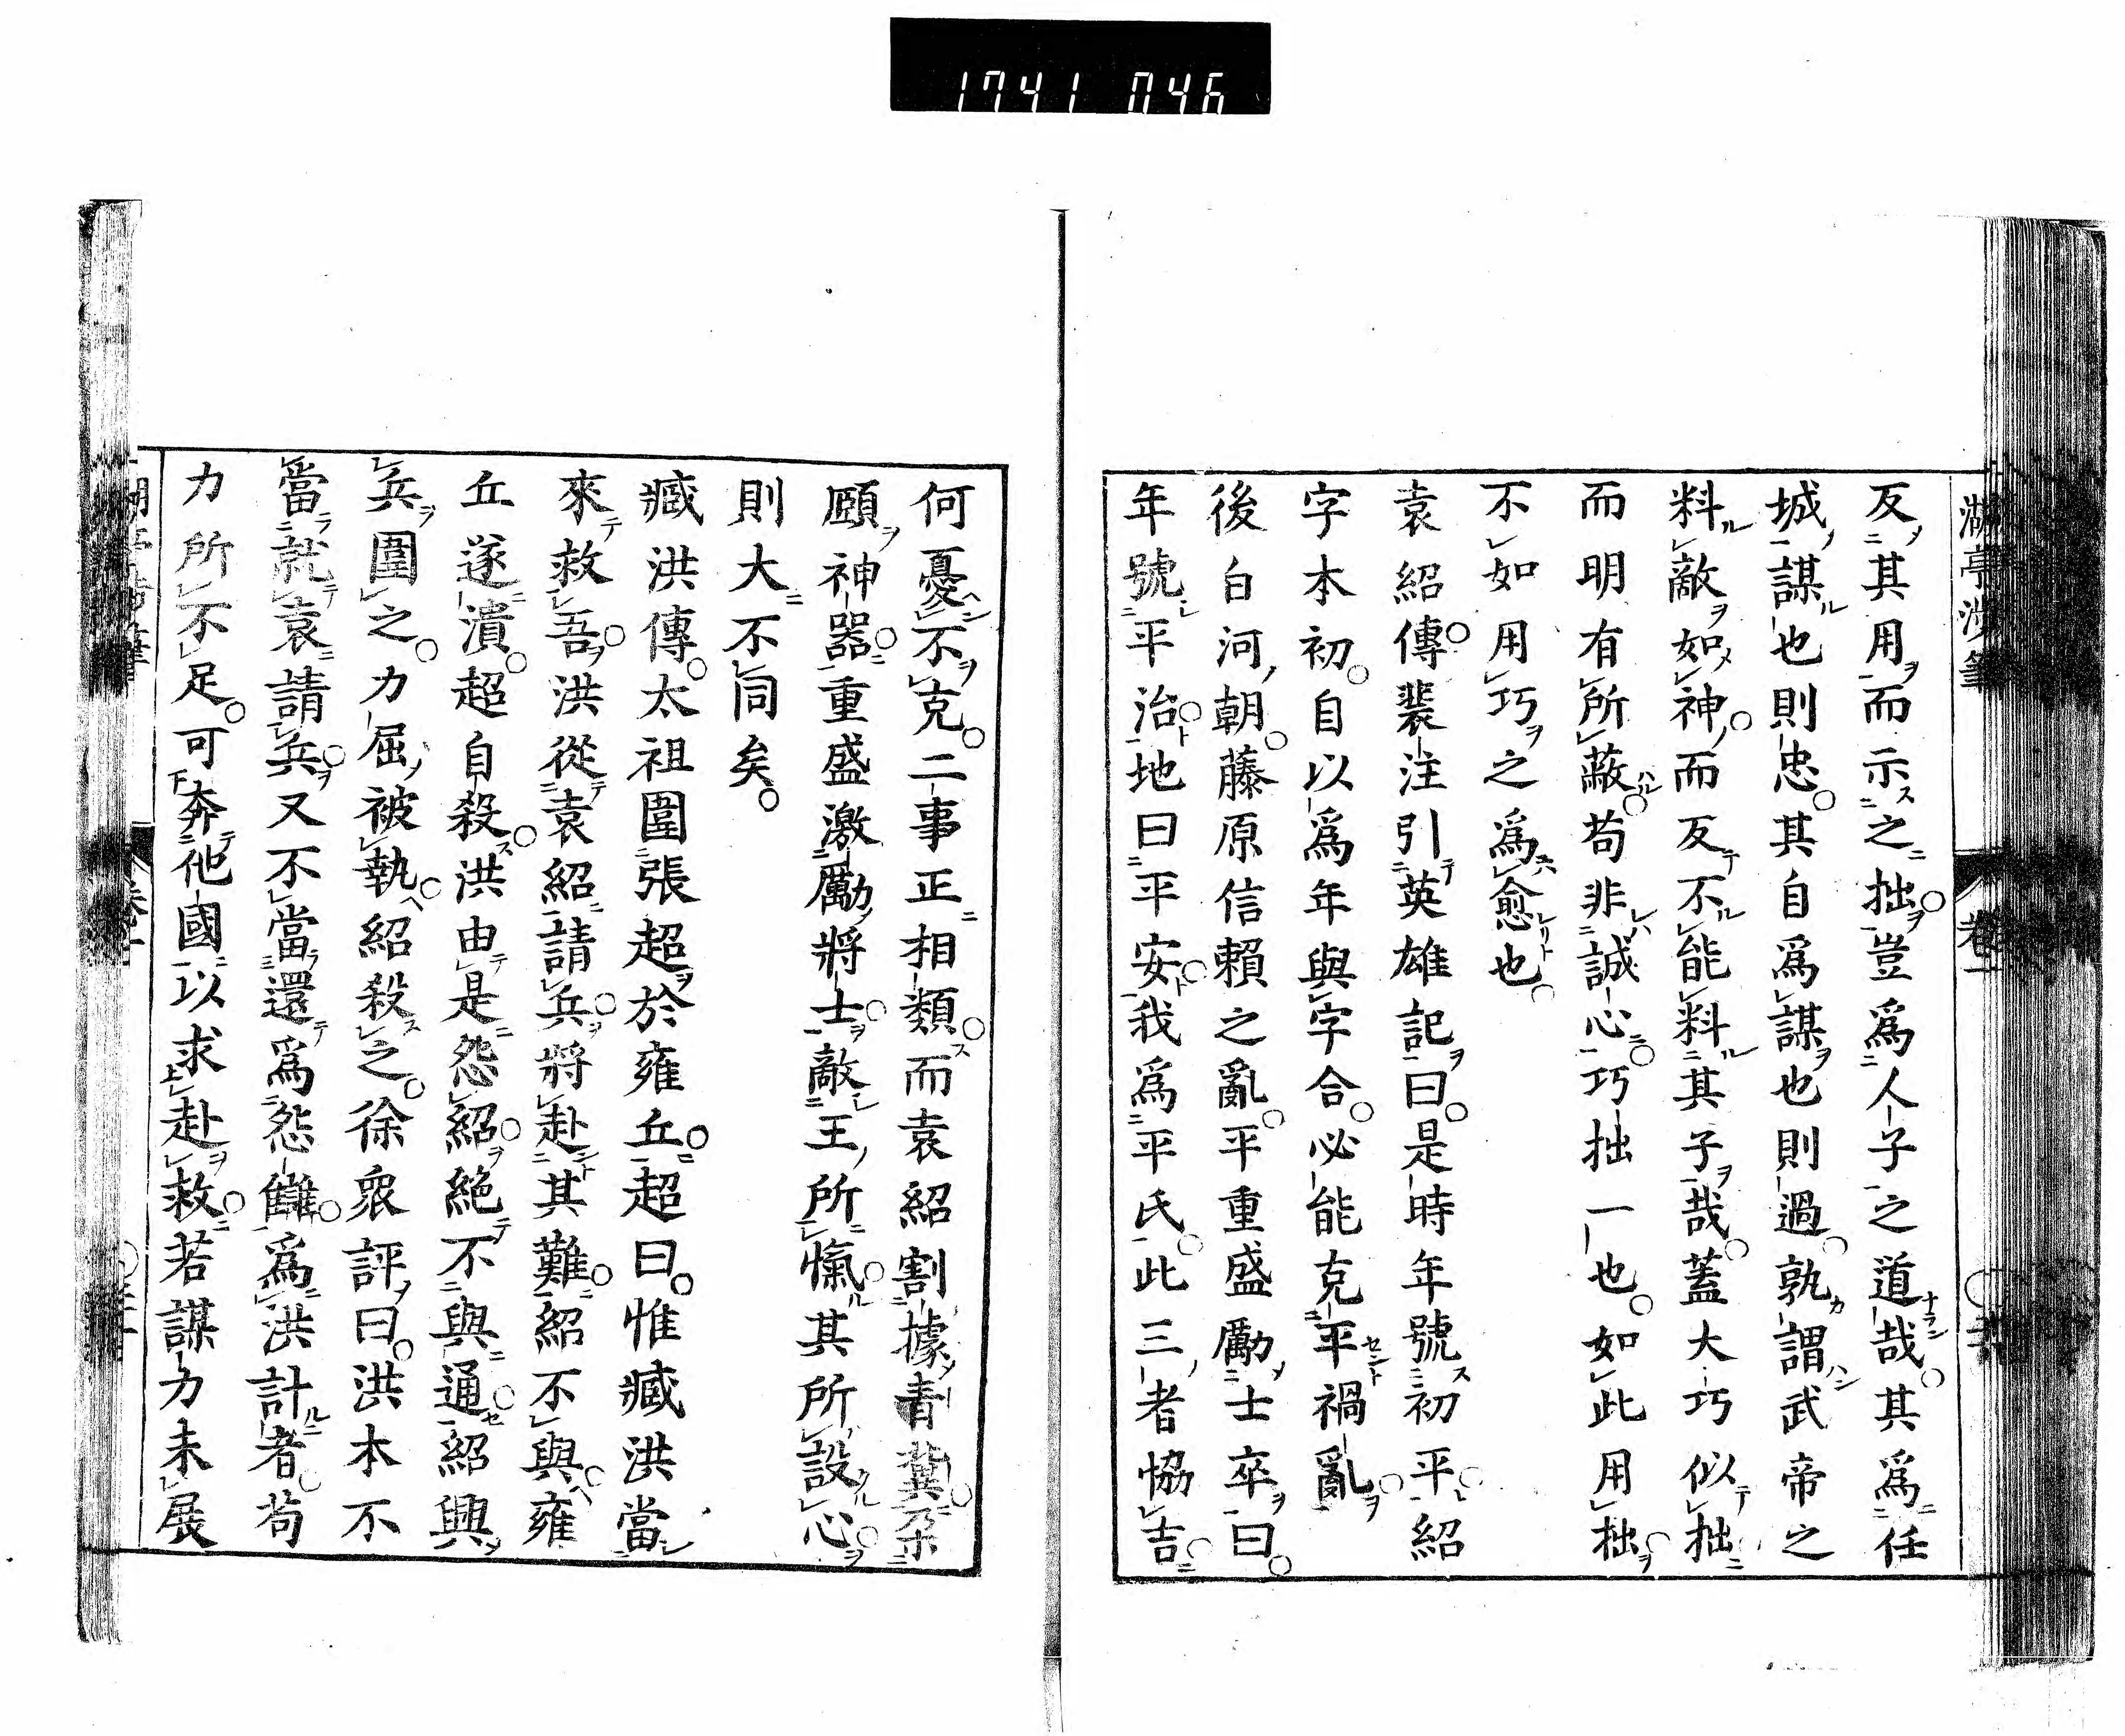 1741 046
湖亭渉筆
卷一
反其用而示之拙豈爲人子之道哉其爲任
城謀也則忠其自爲謀也則過孰謂武帝之
料敵如神而反不能料其子哉蓋大巧似拙
而明有所蔽苟非誠心巧拙一也如此用拙
不如用巧之爲愈也
袁紹傳裴注引英雄記曰是時年號初平紹
字本初自以爲年與字合必能克平禍亂
後白河朝藤原信賴之亂平重盛勵士卒曰
年號平治地曰平安我爲平氏此三者協吉
何憂不克二事正相類而袁紹割據青冀朶
頤神器重盛激勵將士敵王所愾其所設心
則大不同矣
臧洪傳太祖圍張超於雍丘超曰惟臧洪當
來救吾洪從袁紹請兵將赴其難紹不與雍
丘遂潰超自殺洪由是怨紹絶不與通紹興
兵圍之力屈被執紹殺之徐衆評曰洪本不
當就袁請兵又不當還爲怨讎爲洪計者苟
力所不足可奔他國以求赴救若謀力未展